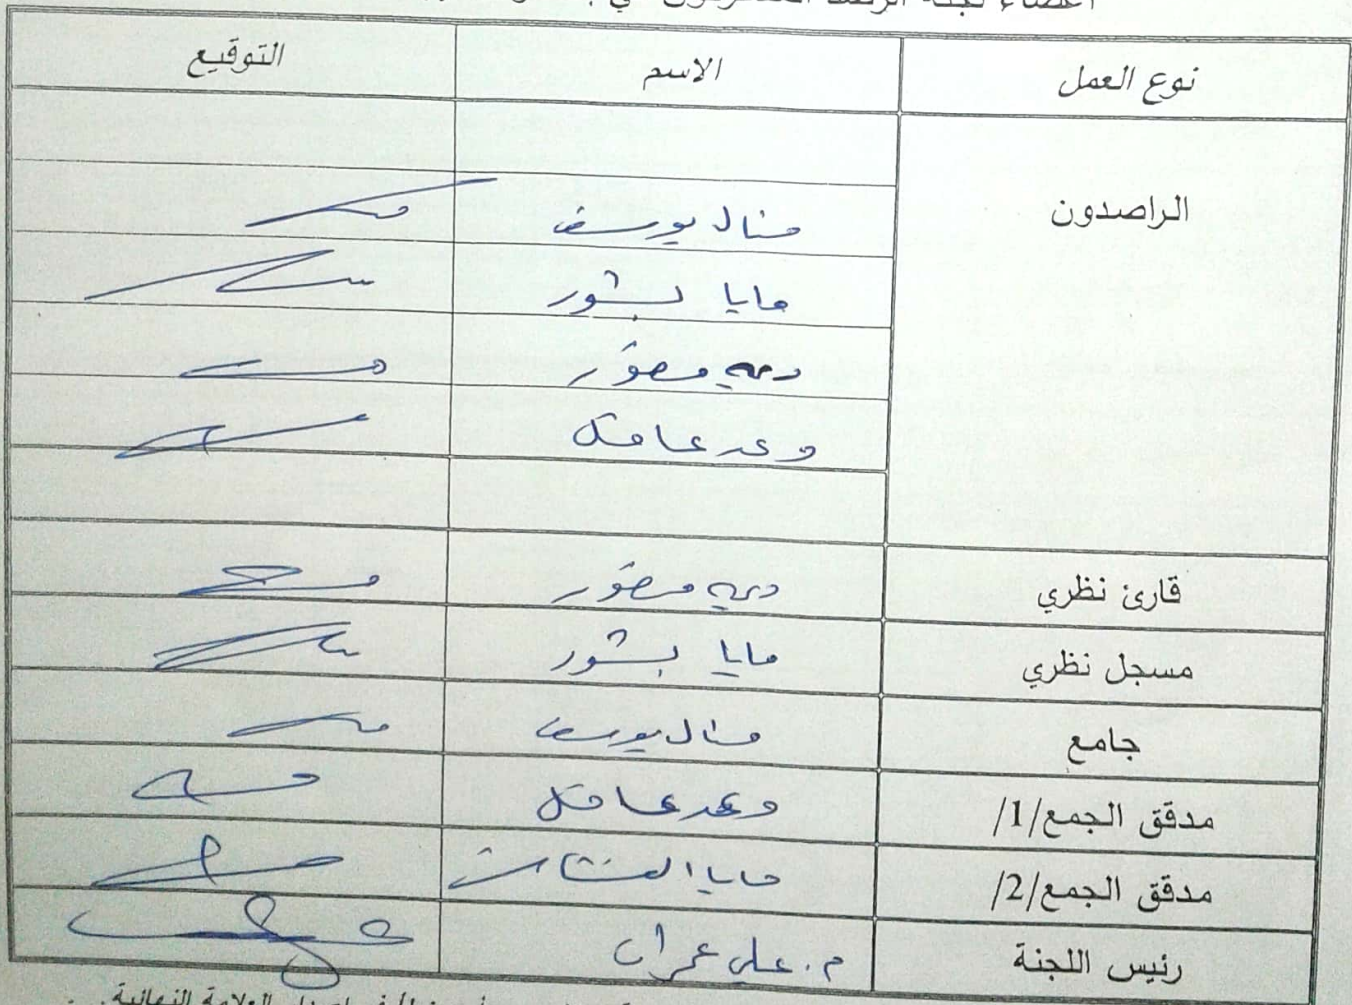 أعضاء لجنة
نوع العمل الاسم التوقيع
الراصدون
منال يوسف
مايا بشور
منصور
وعد عاقل
قارئ نظري منصور
مسجل نظري مايا بشور
جامع منال يوسف
مدقق الجمع/1/ وعد عاقل
مدقق الجمع/2/ مايا
رئيس اللجنة م. علي عمران
العلامة النهائية.